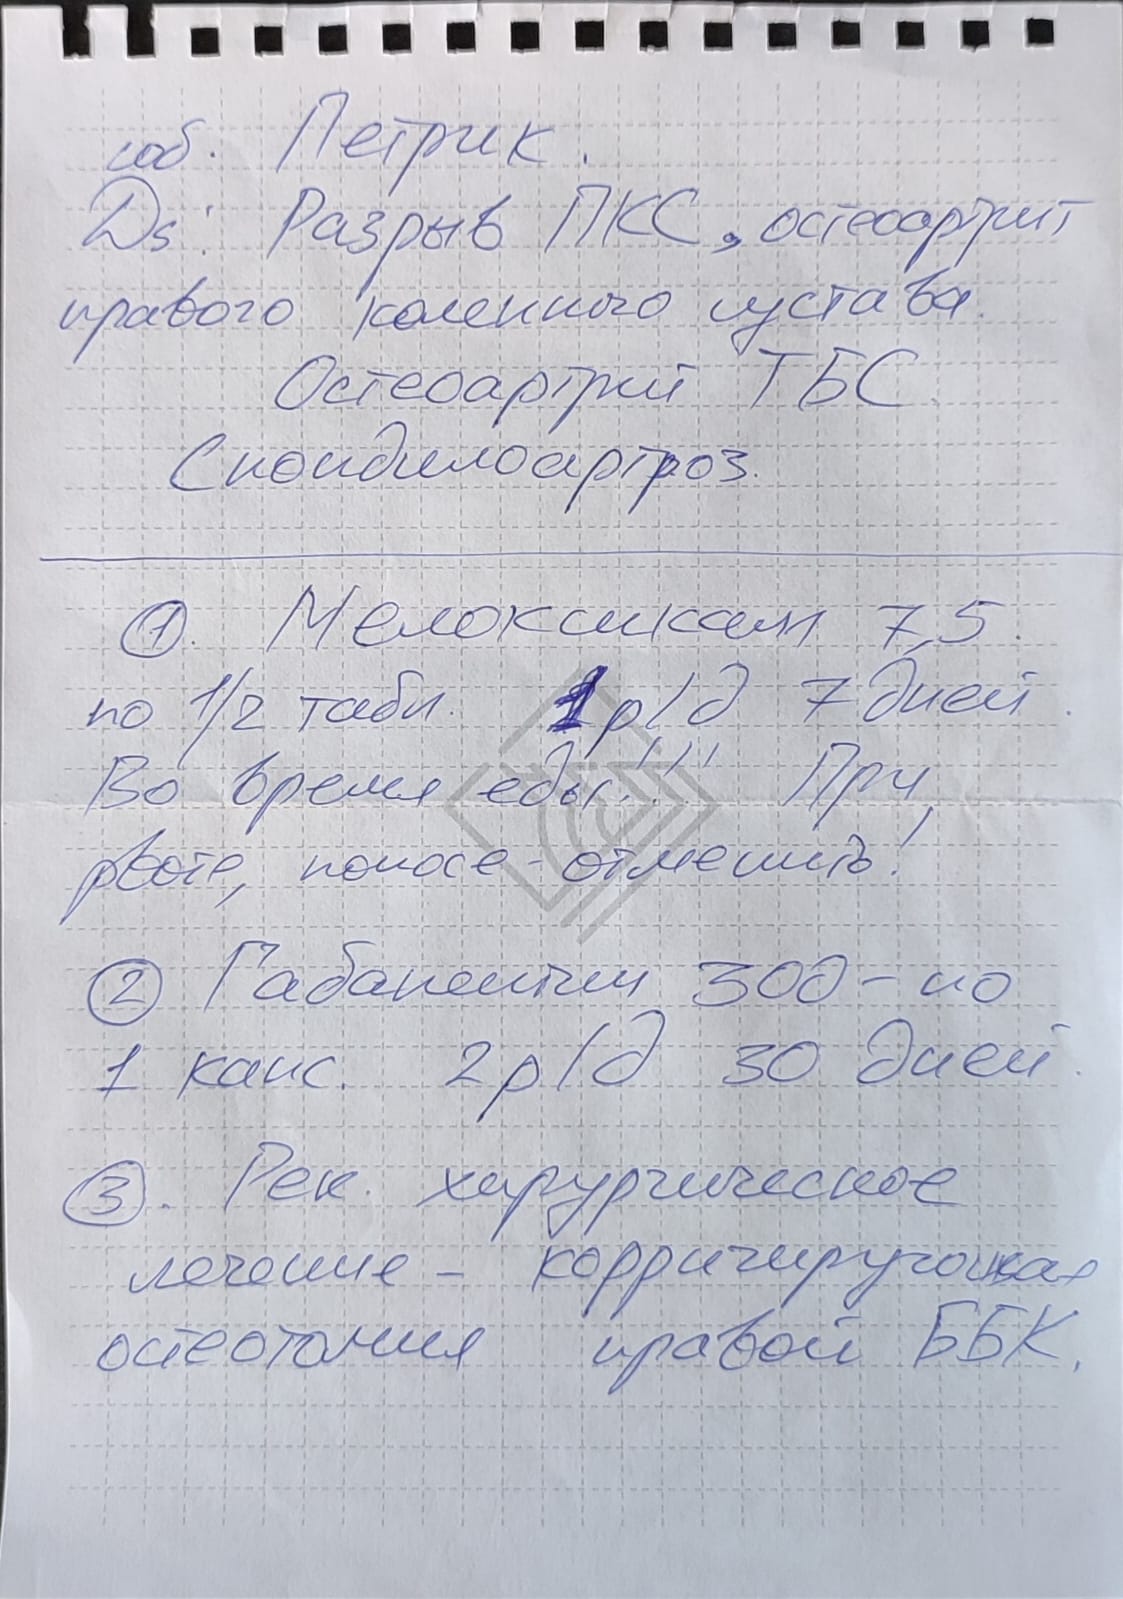 соб. Петрик.
Ds: Разрыв ПКС, остеоартрит
правого коленного сустава.
Остеоартрит ТБС.
Спондилоартроз.
1. Мелоксикам 7,5.
по 1/2 табл. 1 р/д 7 дней.
Во время еды!!! При
рвоте, поносе - отменить!
2 Габапентин 300 - по
1 капс. 2 р/д 30 дней.
3. Рек. хирургическое
лечение - корригирующая
остеотомия правой ББК.